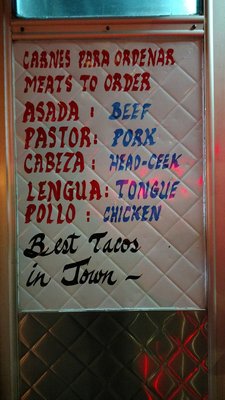 CARNES PARA ORDENAR
MEATS TO ORDER
ASADA : BEEF
PASTOR: PORK
CABEZA: HEAD-CEEK
LENGUA: TONGUE
POLLO : CHICKEN
Best Tacos
in Town ~